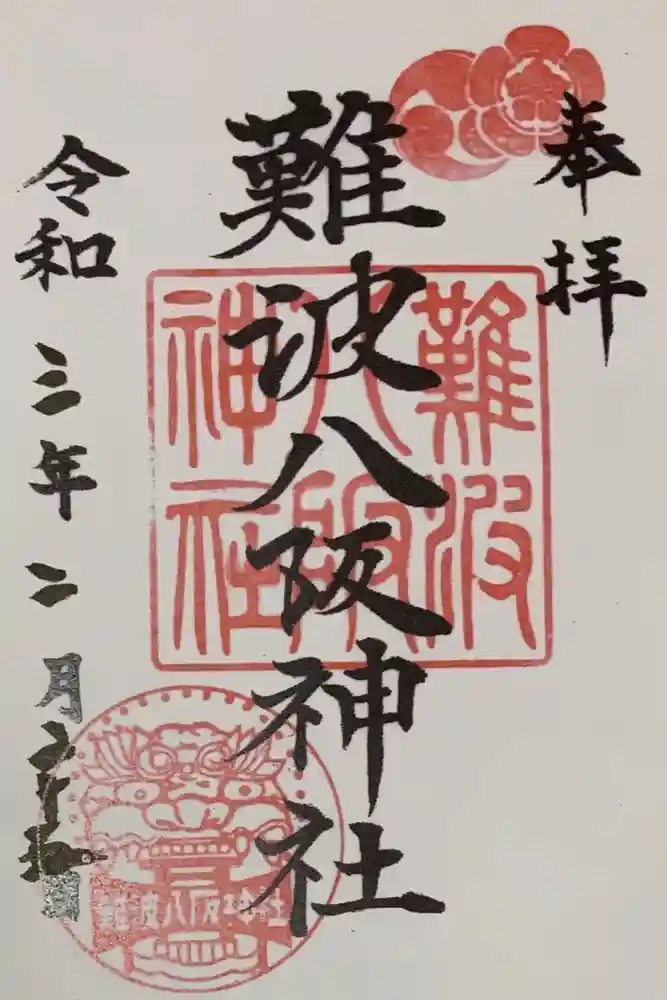 奉拝
難波八阪神社
難波八阪神社
令和三年二月
難波八阪神社